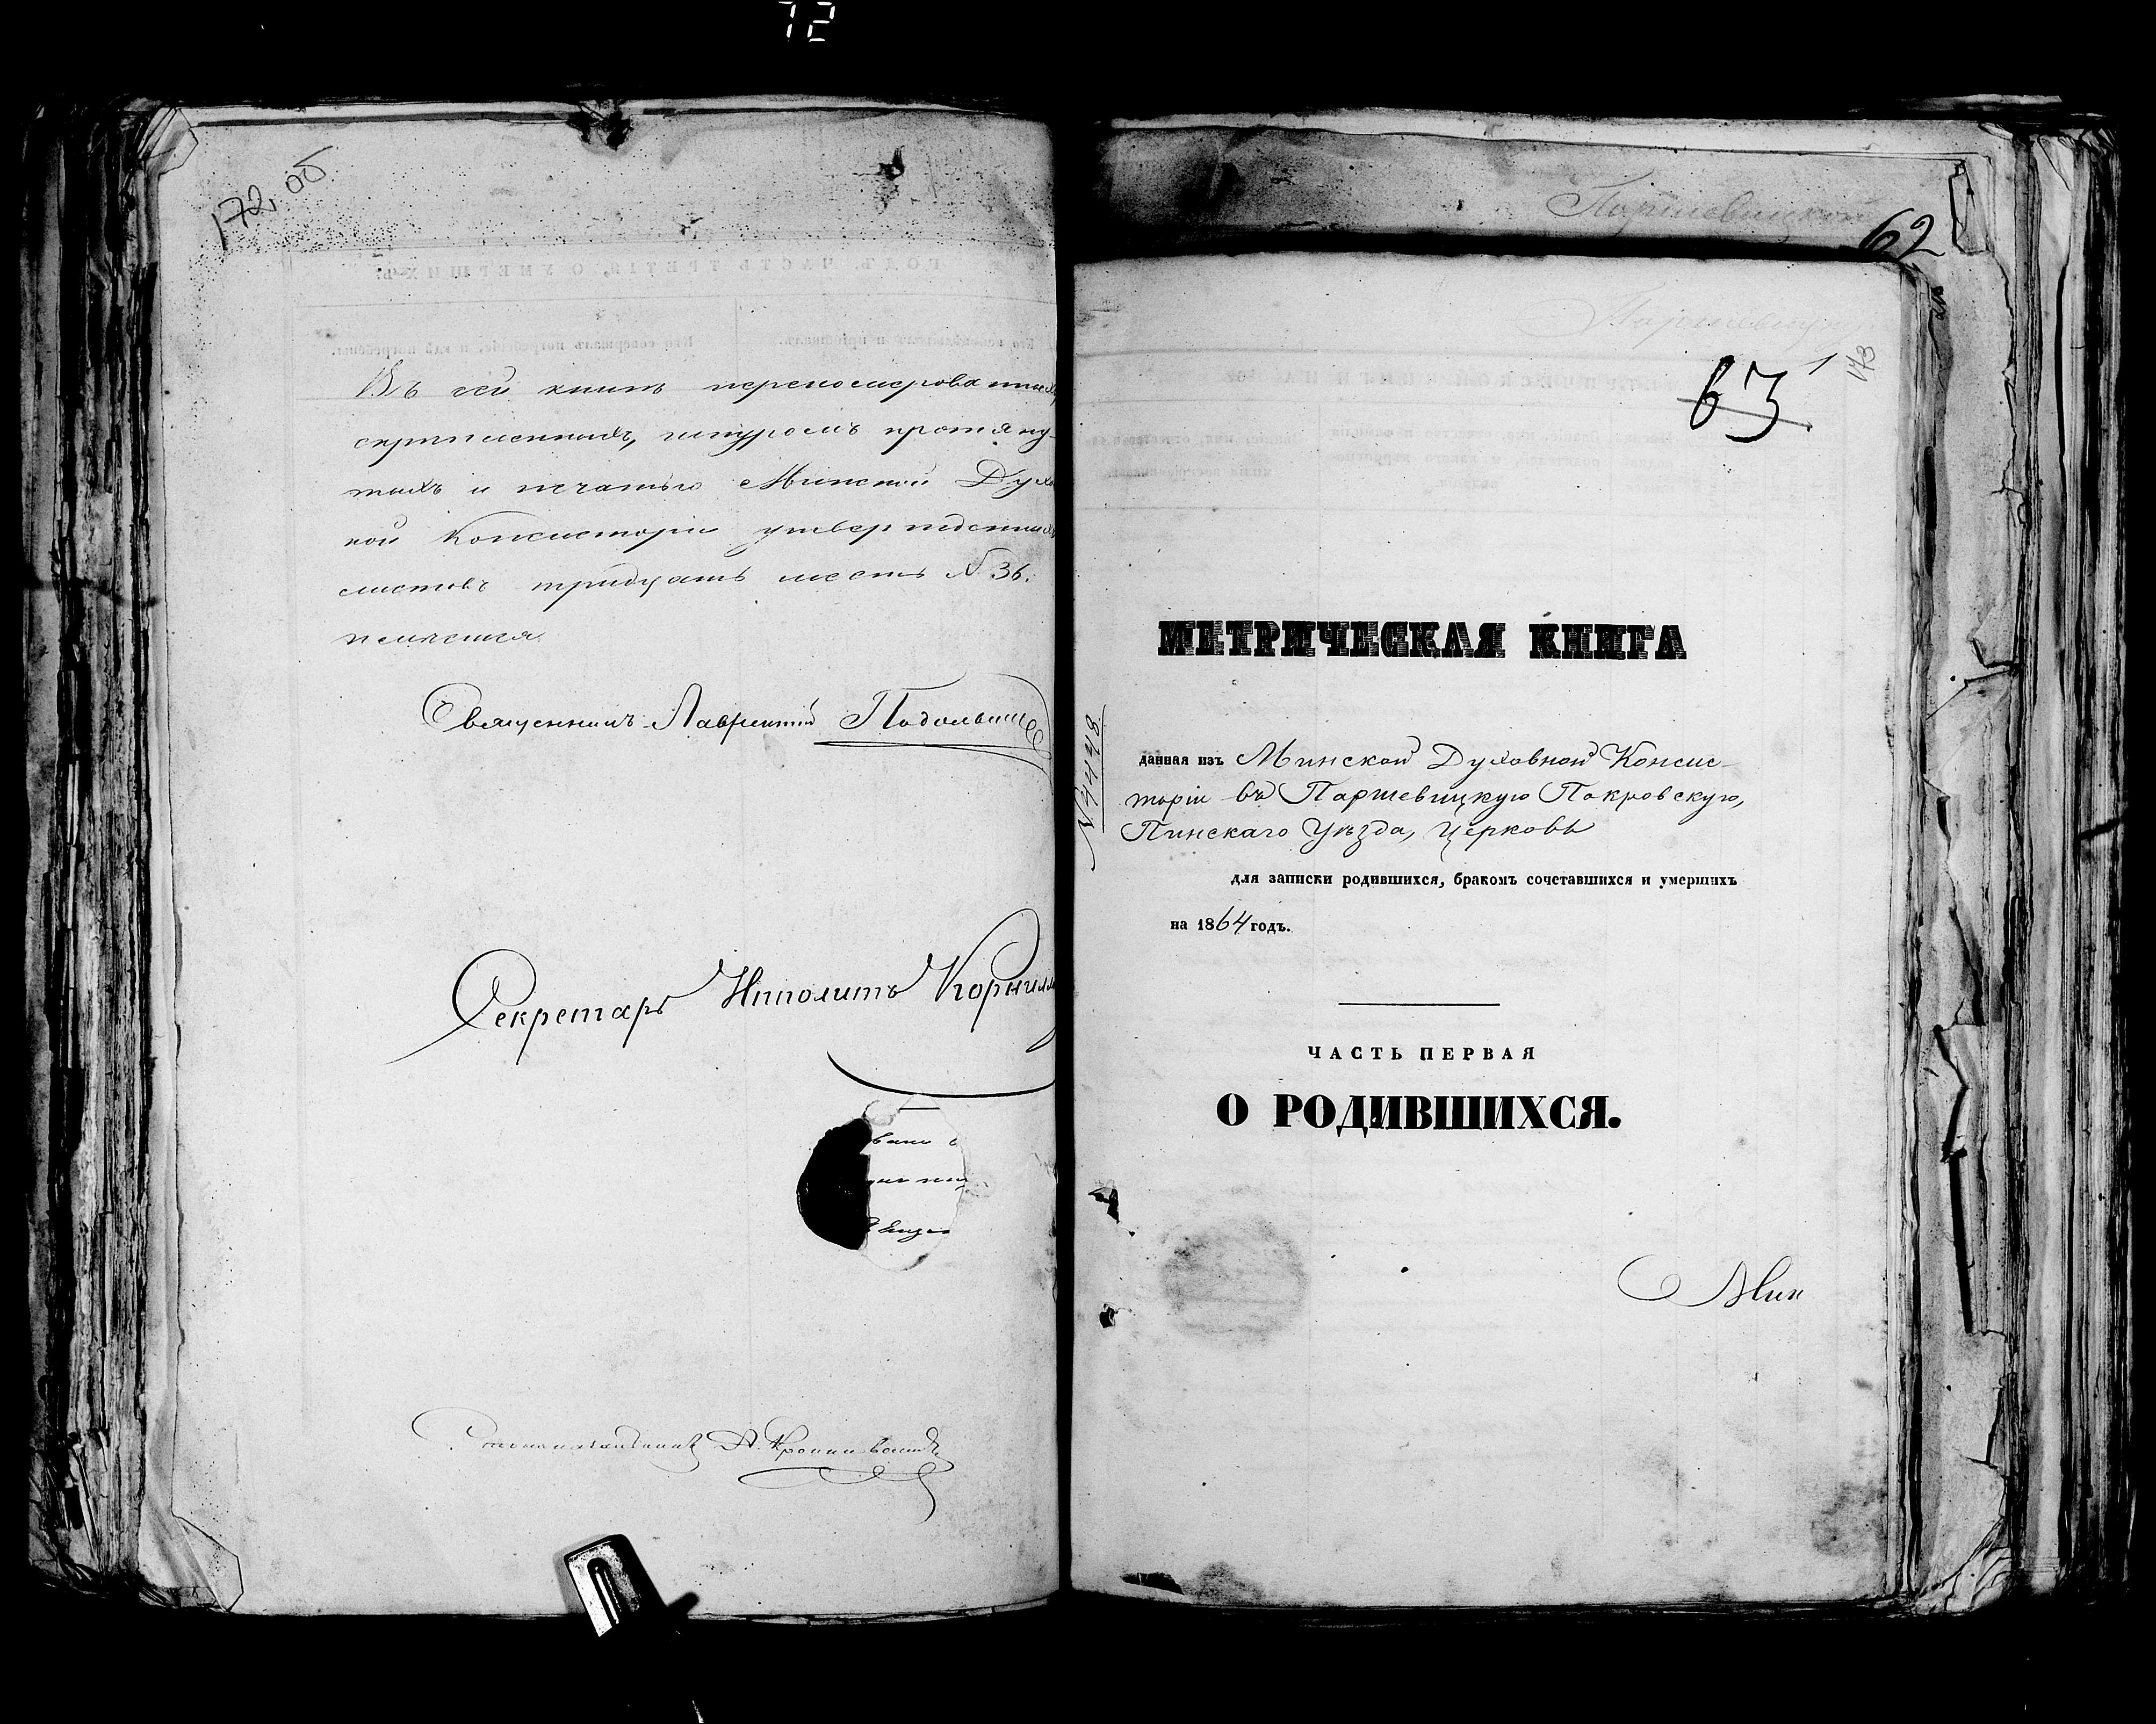 72
172, об.
Въ сей книгѣ переномерованныхъ,
скрѣпленныхъ, шнуромъ протяну-
тыхъ и печатью Минской Духо
ной Консисторіи утвержденныхъ
листовъ тридцать шесть № 36.
имѣется
Священникъ Лаврентій
Секретарь Ипполитъ Корнил
Столоначальникъ А.
Паршевицкой
62
63
1
173
МЕТРИЧЕСКАЯ КНИГА
№ 4448
данная изъ Минской Духовной Консис-
торіи въ Паршевицкую Покровскую,
Пинскаго Уѣзда, Церковь
для записки родившихся, бракомъ сочетавшихся и умершихъ
на 1864 годъ.
ЧАСТЬ ПЕРВАЯ
О РОДИВШИХСЯ.
Мин